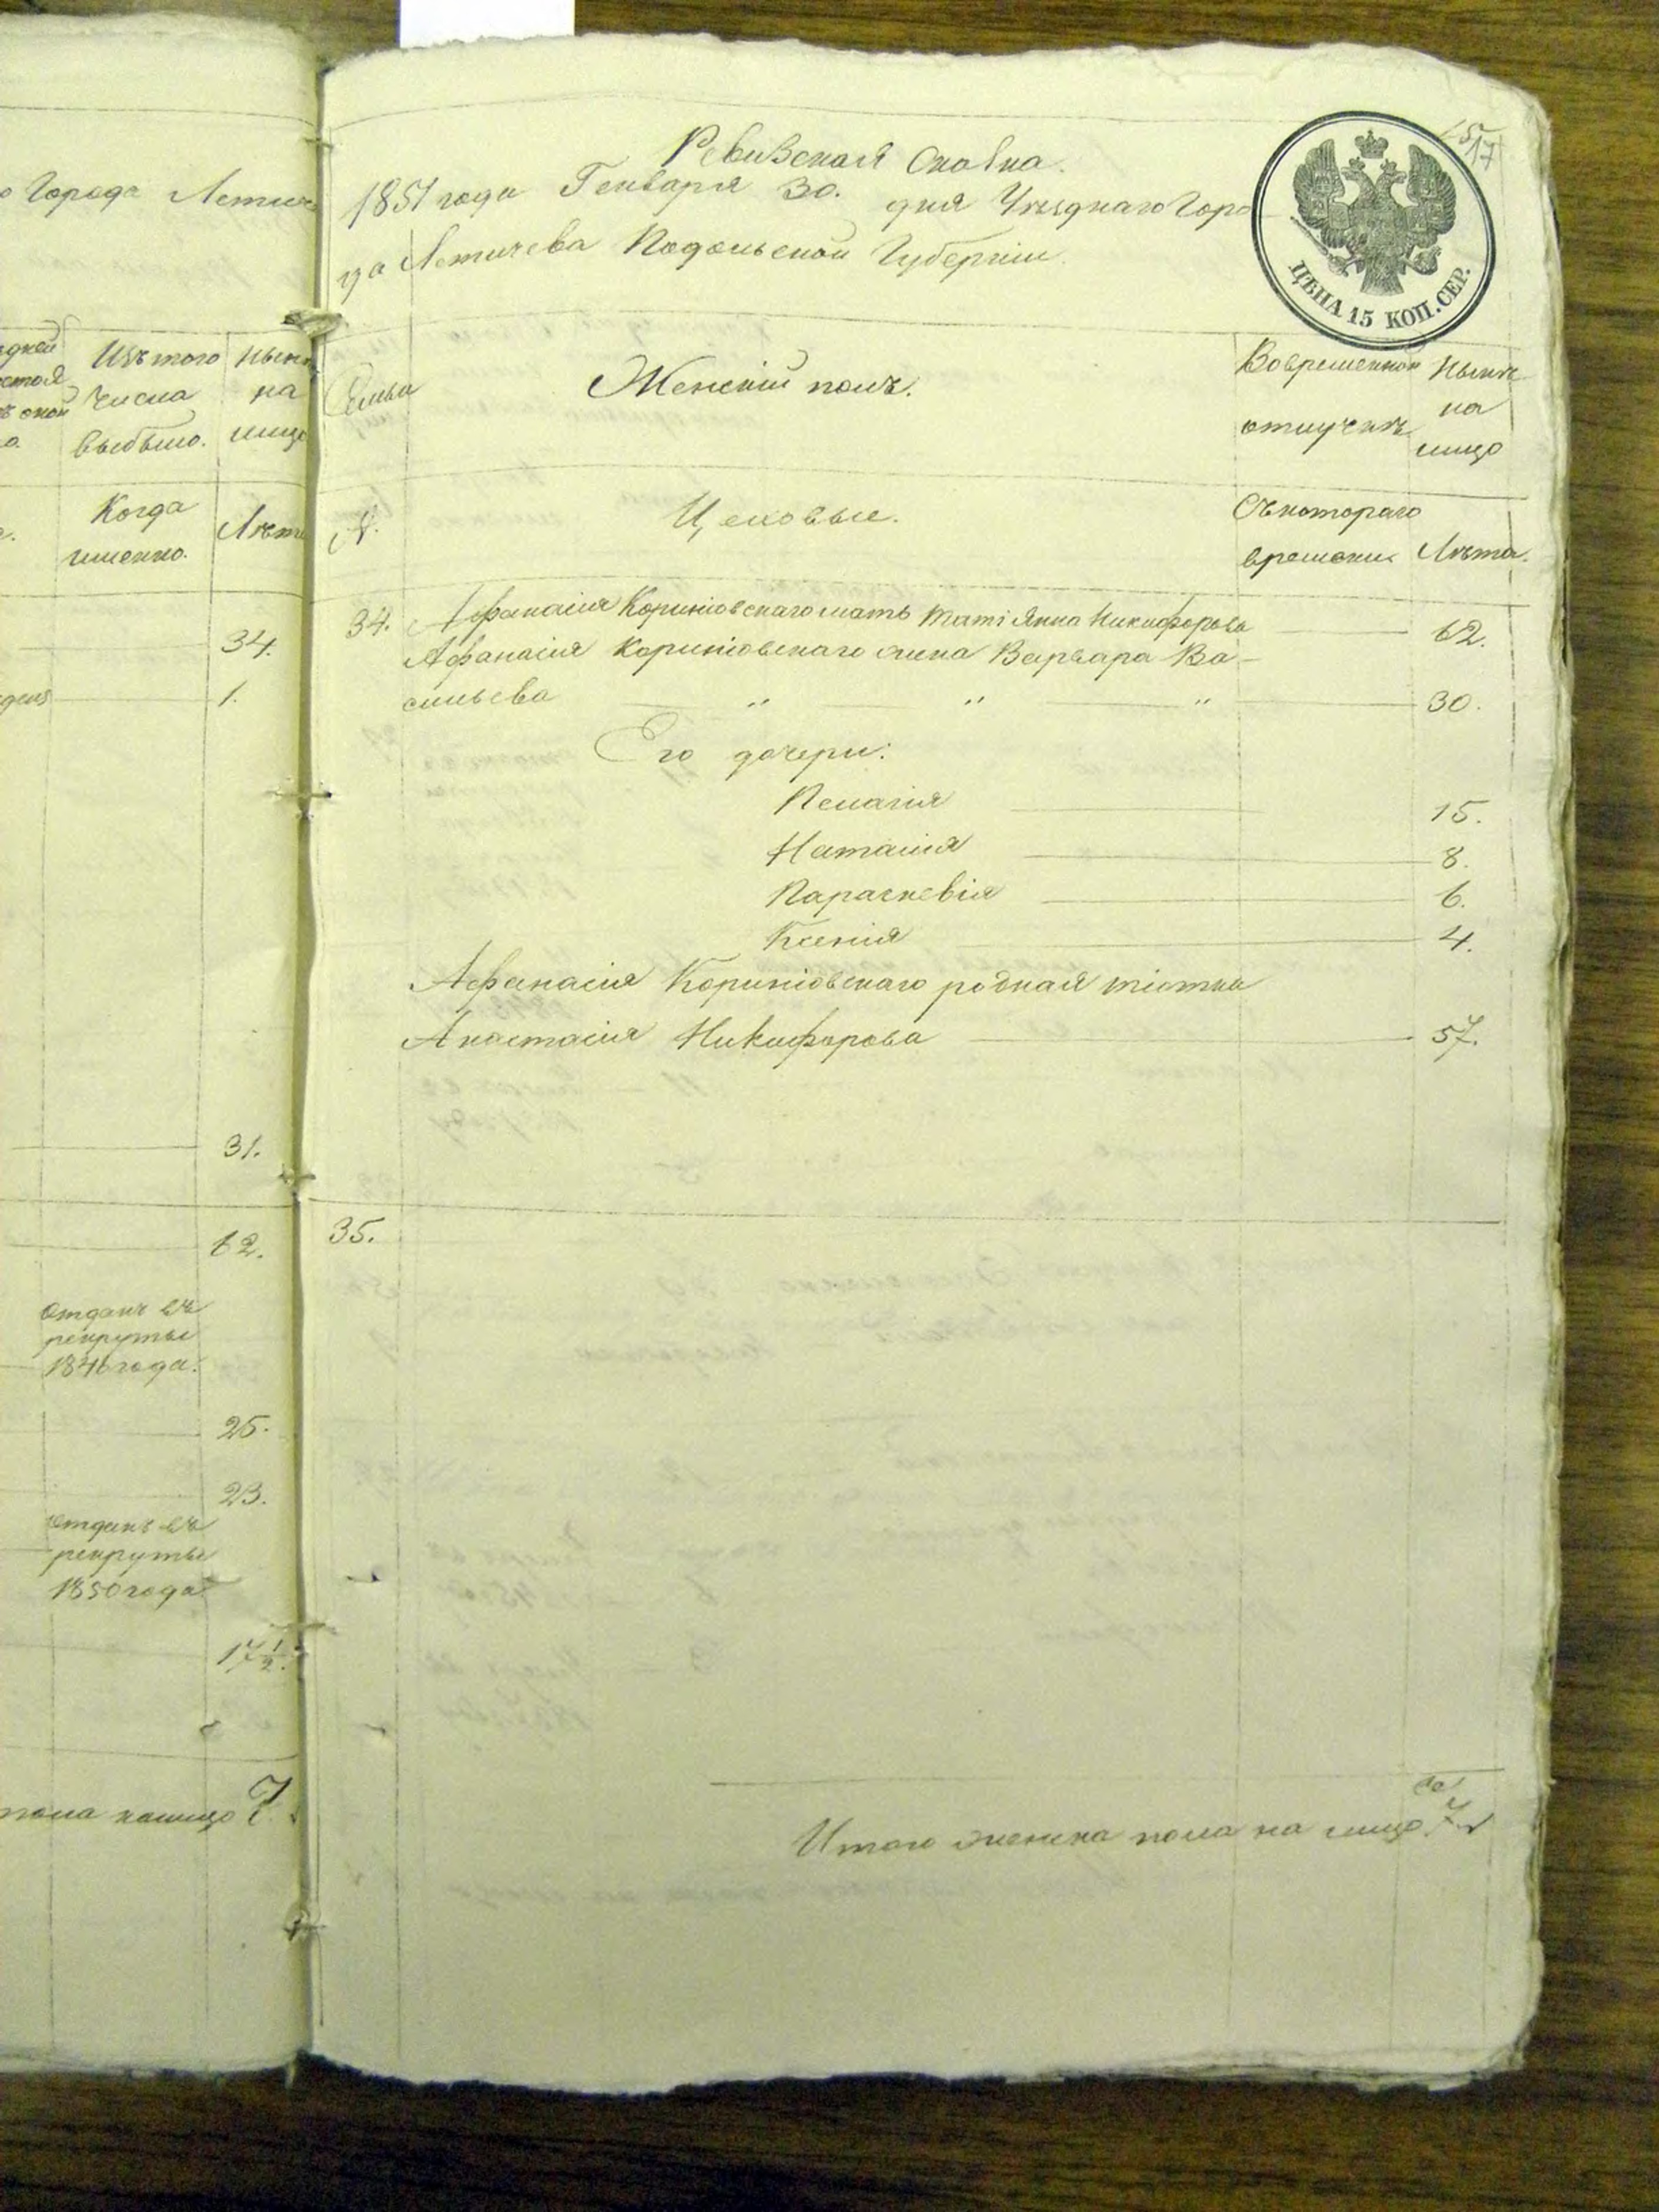 о Города Летич
Изъ того
числа
выбыло.
нынѣ
на
лицо
Когда
именно.
Лѣта
34.
1.
31.
62.
Отданъ въ
рекруты
1846 года.
25.
23.
Отданъ въ
рекруты
1850 года
17 1/2.
пола налицо 7
17
Ревизская Сказка.
1851 года Генваря 30. дня Уѣзднаго Горо
да Летичева Подольской Губерніи.
ЦѢНА 15 КОП. СЕР.
Семья
Женскій полъ.
Вовременной
отлучкѣ
Нынѣ
на
лицо
№.
Цеховые.
Съкотораго
времени.
Лѣта.
34. Афанасія Кориніовскаго мать Татіянна Никифорова 62.
Афанасія Кориніовскаго жена Варвара Ва-
сильева " " " 30.
Его дочери:
Пелагія 15.
Наталія 8.
Параскевія 6.
Ксенія 4.
Афанасія Кориніовскаго родная тіотка
Анастасія Никифорова 57.
35.
Итого женска пола на лицо 7